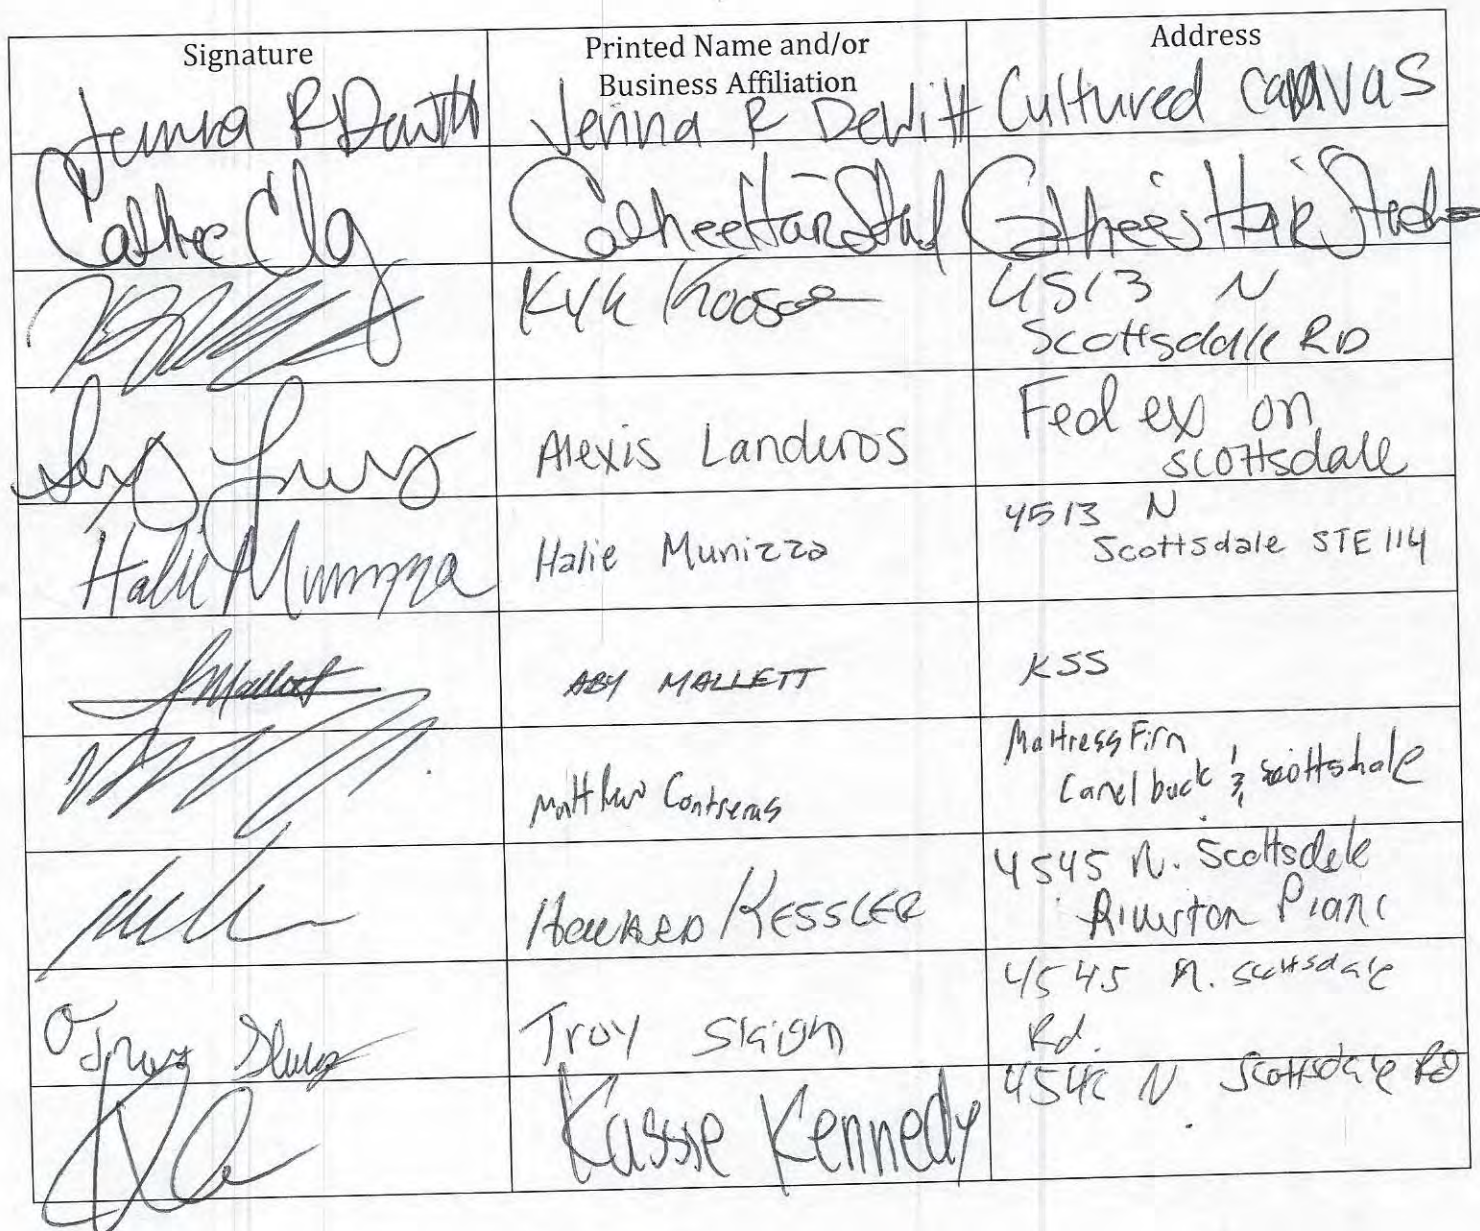 Signature
Printed Name and/or
Business Affiliation
Address
Jenna R DeWitt
Jenna R DeWitt
Cultured canvas
Cathee
Cathee Hair Stud
Cathee's Hair Studio
Kyle
4513 N
Scottsdale RD
Alexis Landeros
Fed ex on
scottsdale
Halie Munizza
Halie Munizza
4513 N
Scottsdale STE 114
Mallett
ABY MALLETT
KSS
Matthew Contreras
Mattress Firm
Camelback & scottsdale
HOWARD KESSLER
4545 N. Scottsdale
Riverton Piano
Troy
Troy
4545 N. Scottsdale
Rd.
Kassie Kennedy
N Scottsdale Rd